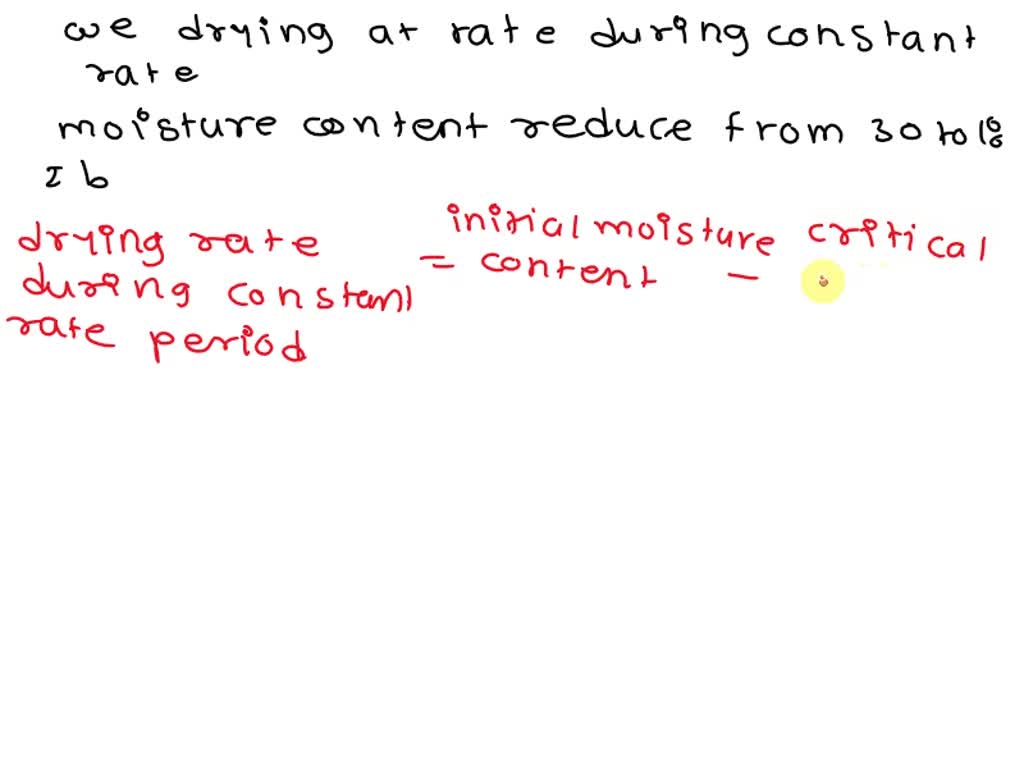 we drying at rate during constant
rate
moisture content reduce from 30 to 18
I b
drying rate
during constant
rate period
initial moisture critical
= content -